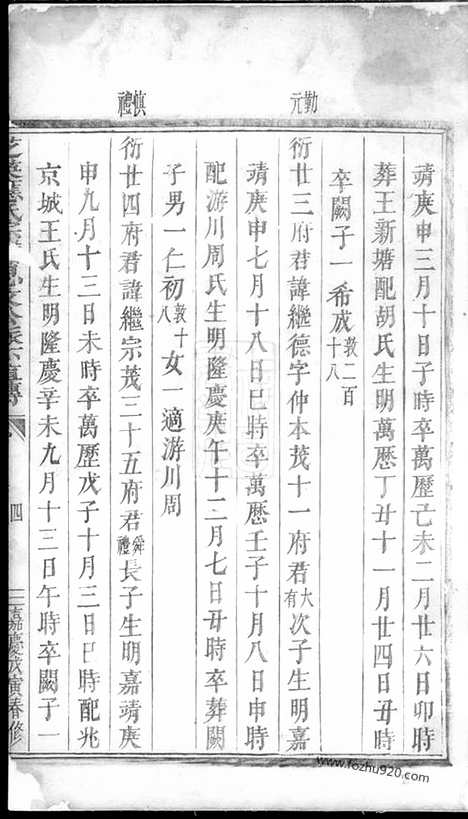 勤元
慎禮
靖庚申三月十日子時卒萬歷己未二月廿六日卯時
葬王新塘配胡氏生明萬歷丁丑十一月廿四日丑時
卒闕子一希成敦二百十八
衍廿三府君諱繼德字仲本茂十一府君大有次子生明嘉
靖庚申七月十八日巳時卒萬歷壬子十月八日申時
配游川周氏生明隆慶庚午十二月七日丑時卒葬闕
子男一仁初敦十八女一適游川周
衍廿四府君諱繼宗茂三十五府君舜禮長子生明嘉靖庚
申九月十三日未時卒萬歷戊子十月三日巳時配兆
京城王氏生明隆慶辛未九月十三日午時卒闕子一
四
嘉慶戊寅春修
www.fozhu920.com